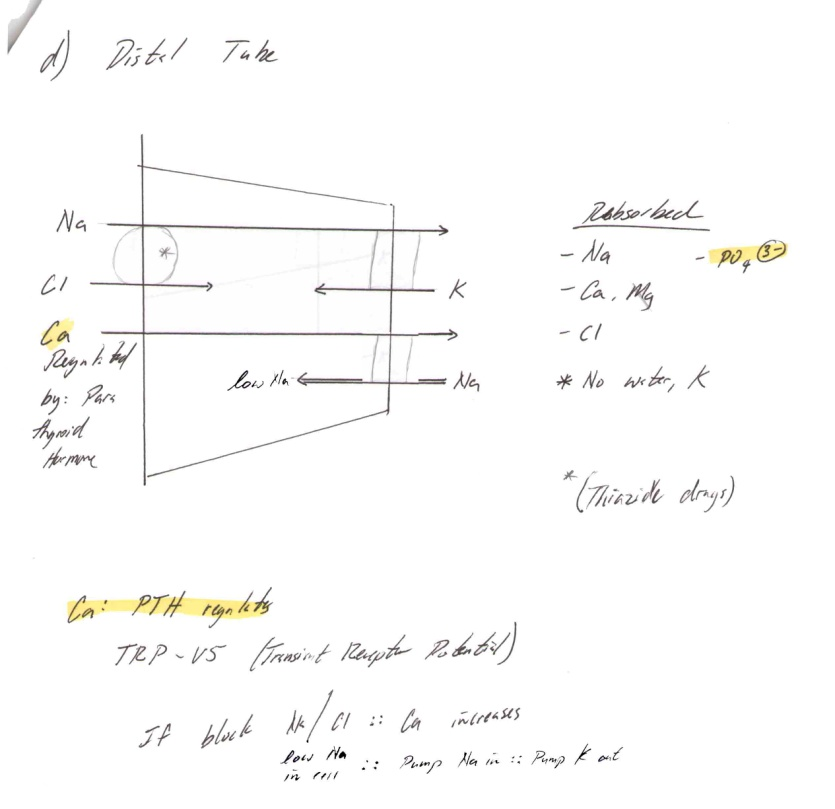 d) Distal Tube
Na
*
Cl
K
Ca
Regulated
by: Para
thyroid
Hormone
low Na
Na
Reabsorbed
- Na
- PO4 3-
- Ca, Mg
- Cl
* No water, K
* (Thiazide drugs)
Ca: PTH regulates
TRP-V5 (Transient Receptor Potential)
If block Na/Cl :: Ca increases
low Na
in cell :: Pump Na in :: Pump K out